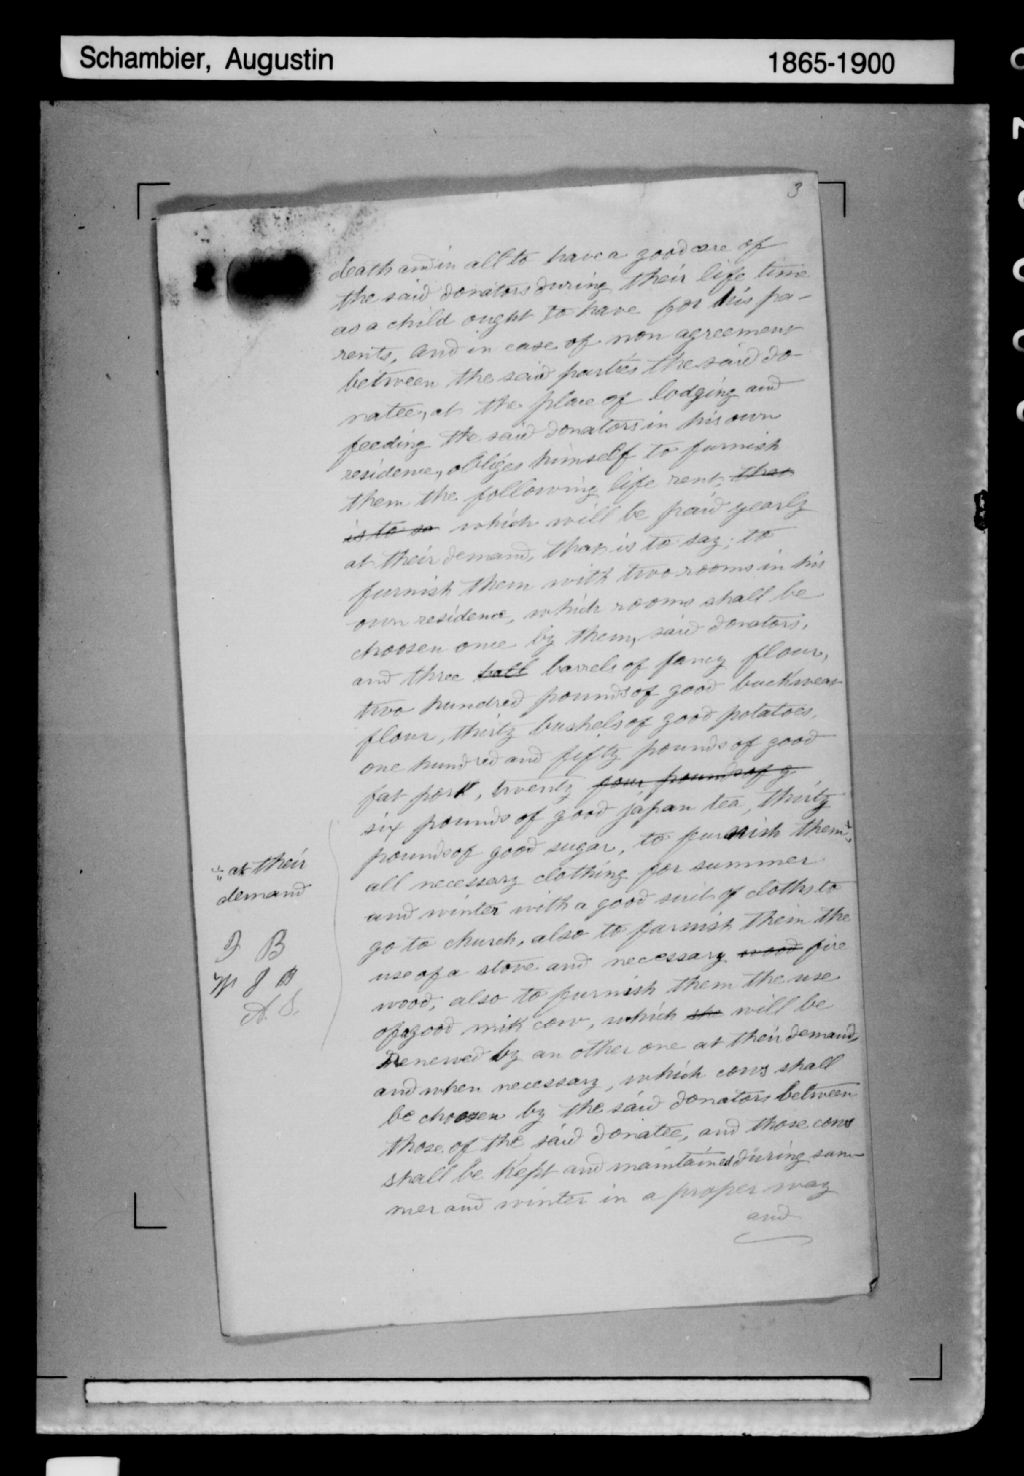 Schambier, Augustin
1865-1900
3
death and in all to have a good care of
the said donators during their life time
as a child ought to have for his pa-
rents, and in case of non agreement
between the said parties the said do-
natee, at the place of lodging and
feeding the said donators in his own
residence, obliges himself to furnish
them the following life rent, that
is to sa which will be paid yearly
at their demand, that is to say; to
furnish them with two rooms in his
own residence, which rooms shall be
choosen once by them, said donators,
and three ball barrels of fancy flour,
two hundred pounds of good buckweat
flour, thirty bushels of good potatoes,
one hundred and fifty pounds of good
fat pork, twenty four pounds of g
six pounds of good japan tea, thirty
pounds of good sugar, to furnish them
all necessary clothing for summer
and winter with a good suit of cloths to
go to church, also to furnish them the
use of a stove and necessary wood fire
wood, also to furnish them the use
of a good milk cow, which sha will be
Renewed by an other one at their demand,
and when necessary, which cows shall
be choosen by the said donators between
those of the said donatee, and those cows
shall be kept and maintained during sum-
mer and winter in a proper way
and
at their
demand
J B
W J B
A. S.